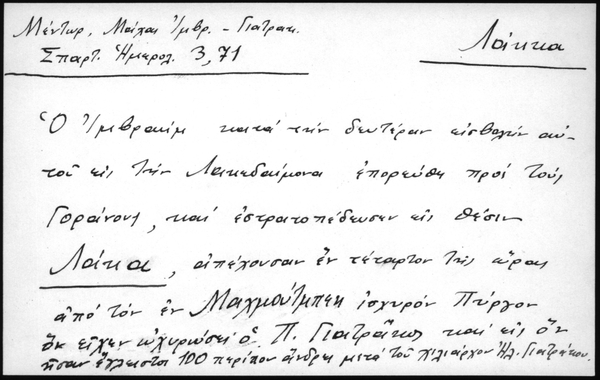 Μέντωρ, Μάχαι Ἰμβρ. - Γιατρακ.
Σπαρτ. Ἡμερολ. 3, 71
Λάκκα
Ὁ Ἰμβραὴμ κατὰ τὴν δευτέραν εἰσβολὴν αὐ-
τοῦ εἰς τὴν Λακεδαίμονα ἐπορεύθη πρὸς τοὺς
Γοράνους, καὶ ἐστρατοπέδευσεν εἰς θέσιν
Λάκα, ἀπέχουσαν ἓν τέταρτον τῆς ὥρας
ἀπὸ τὸν ἐν Μαχμούτμπεη ἰσχυρὸν Πύργον
ὃν εἶχεν ὀχυρώσει ὁ Π. Γιατράκος καὶ εἰς ὃν
ἦσαν ἔγκλειστοι 100 περίπου ἄνδρες μετὰ τοῦ χιλιάρχου Ἠλ. Γιατράκου.